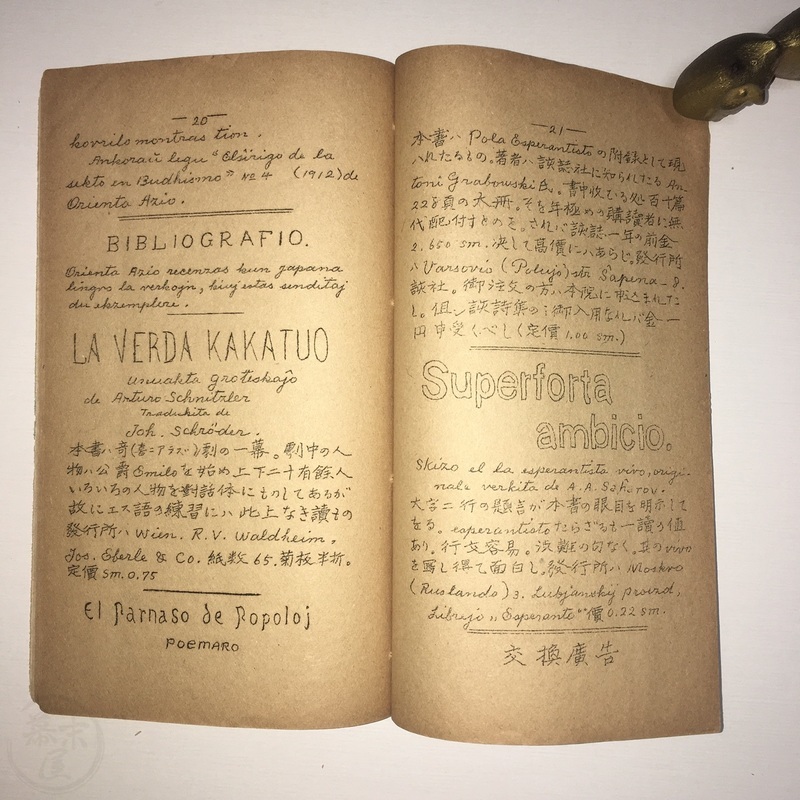 — 20 —
kovrilo montras tion.
Ankoraŭ legu "Elsirigo de la
sekto en Budhismo" № 4 (1912) de
Orienta Azio.
BIBLIOGRAFIO.
Orienta Azio recenzas kun japana
lingvo la verkojn, kiuj estas senditaj
du ekzempleroj.
LA VERDA KAKATUO
unuakta groteskaĵo
de Arturo Schnitzler
Tradukita de
Joh. Schröder.
本書ハ奇(喜ニアラズ)劇の一幕。劇中の人
物ハ公爵Emileを始め上下二十有餘人
いろいろの人物を對話体にものしてあるが
故にエス語の練習にハ此上なき讀もの
發行所ハ Wien. R.V. Waldheim,
Jos. Eberle & Co. 紙数65.菊板半折。
定價 Sm. 0.75
El Parnaso de Popoloj
POEMARO
— 21 —
本書ハ Pola Esperantisto の附録として現
ハれたるもの。著者ハ該誌社に知られたる An-
toni Grabowski 氏。書中收むる処百十篇
228頁の大冊。そを年極めの購讀者に無
代配付すものを。されバ該誌一年の前金
2.650 sm. 決して高價にハあらじ。發行所
ハ Varsovio (Polujo) str. Sapena - 8.
該社。御注文の方ハ本院に申込まれた
し。但シ該詩集のミ御入用なれバ金一
円申受くべし(定價 1.00 sm.)
Superforta
ambicio.
Skizo el la esperantista vivo, origi-
nale verkita de A.A. Saĥarov.
大字二行の題言が本書の眼目を明示して
をる。esperantistoたらざるも一讀の値
あり。行文容易。渋難の句なく。其のvivo
を写し得て面白し。發行所ハ Moskvo
(Ruslando) 3. Lubjanskij proizd,
Librejo „Esperanto" 價0.22 sm.
交換廣告